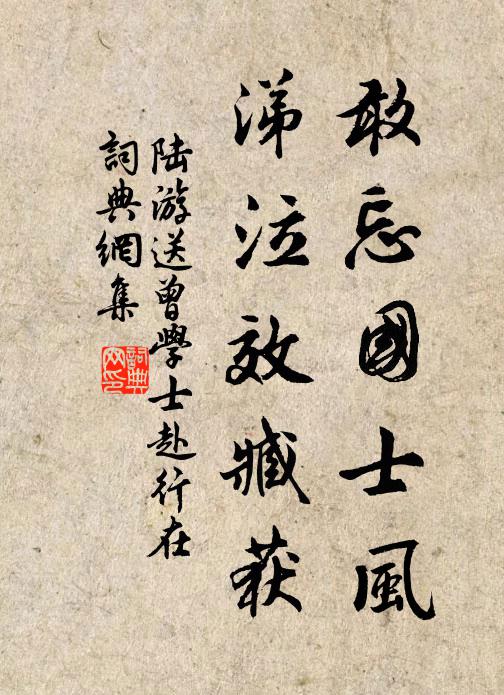 敢忘國士風
涕泣效臧获
陸游送曾學士赴行在
詞典網集
詞典網印